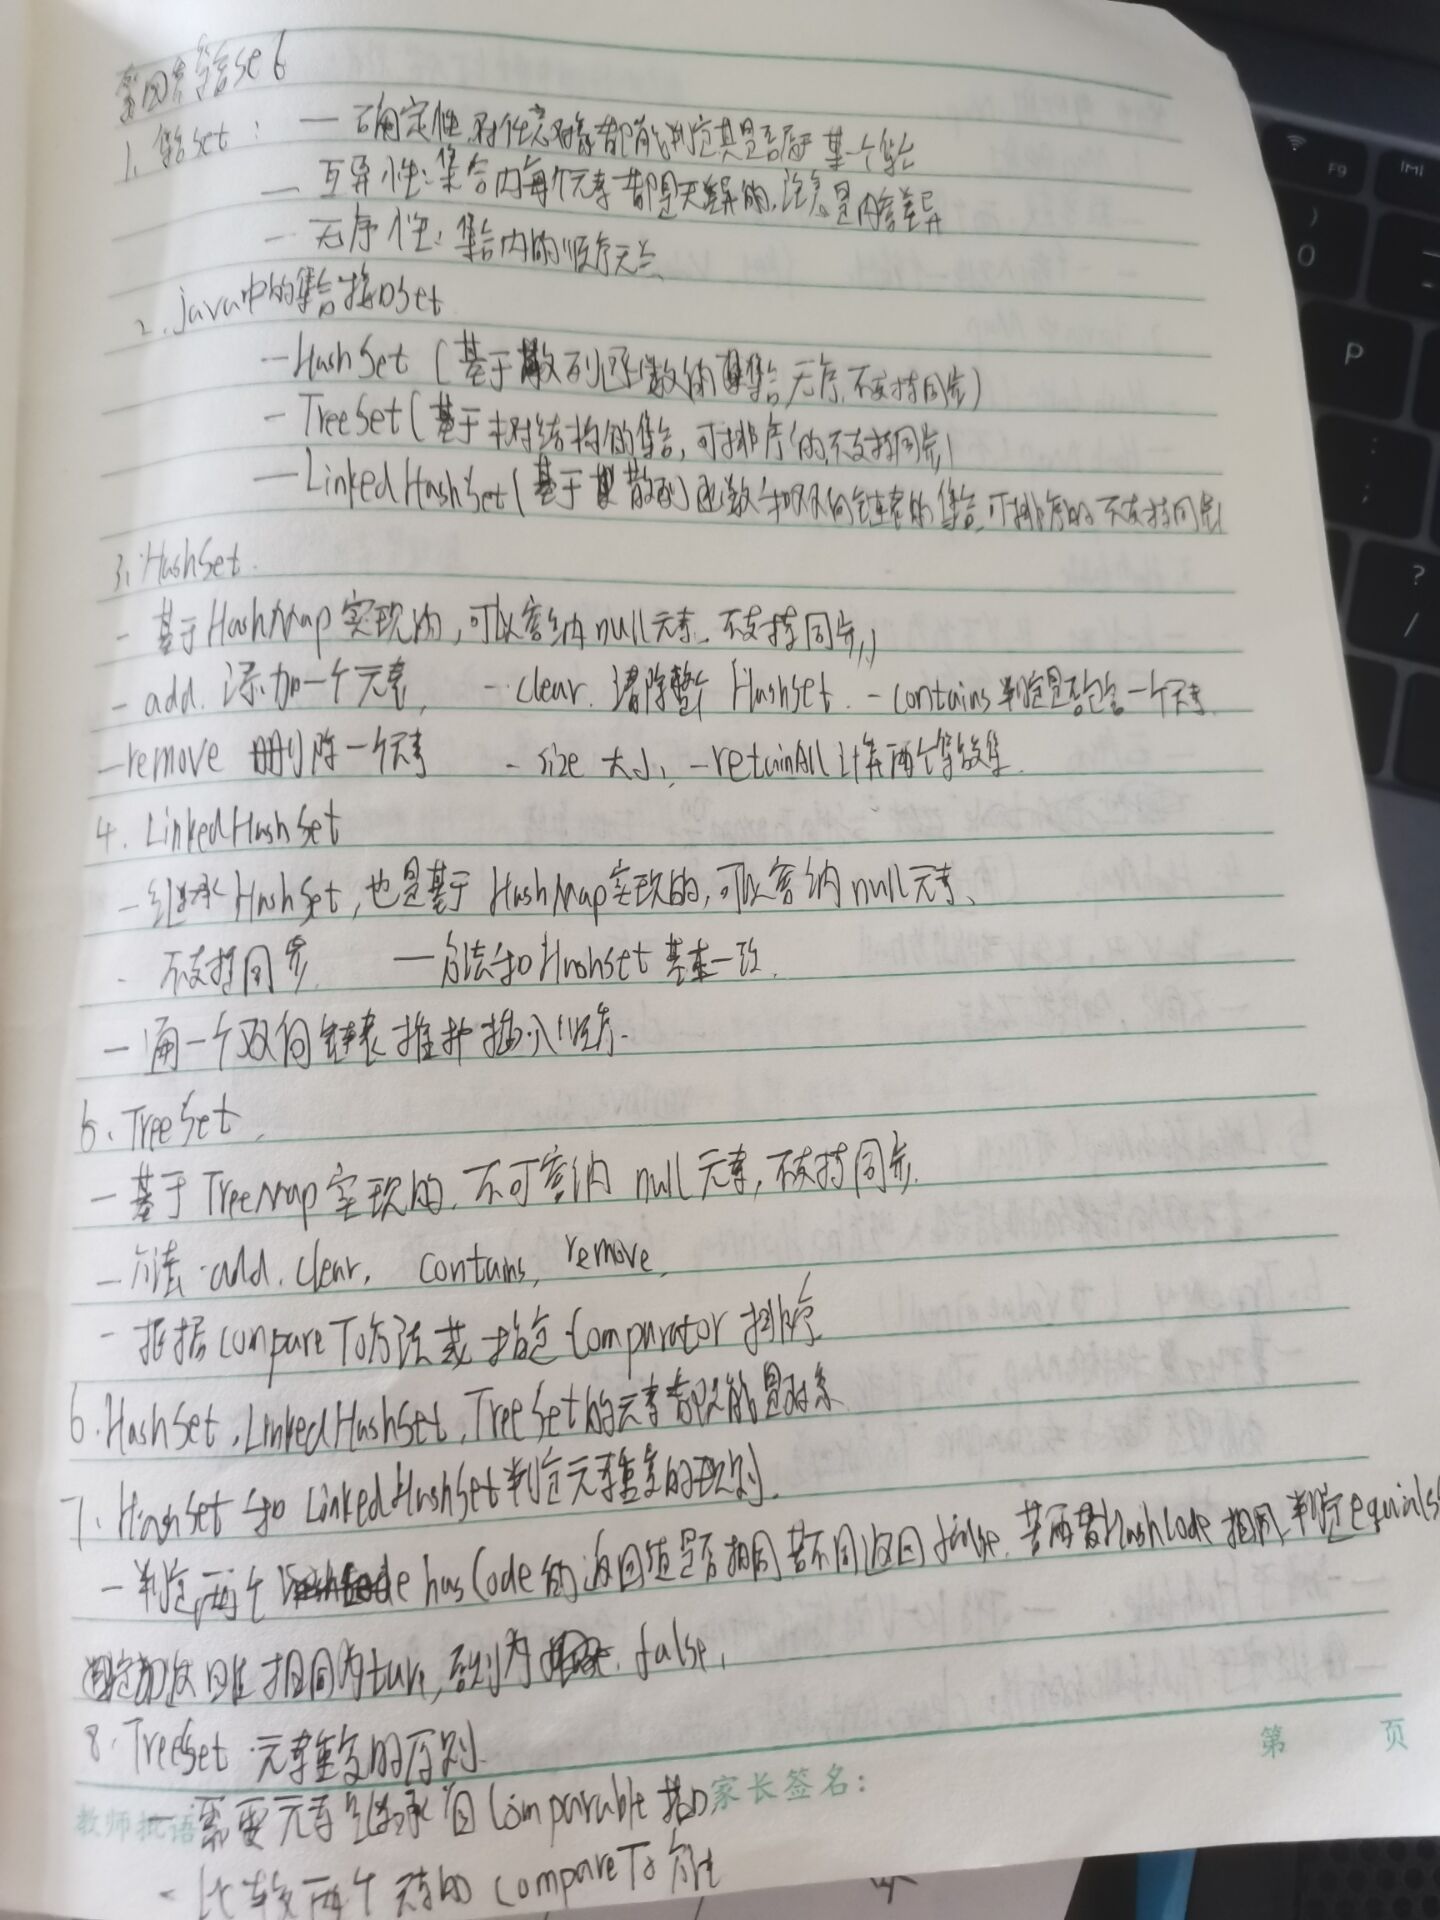 第四节 集合set
1、集合set: — 确定性 对任意对象都能判定其是否属于某一个集合
— 互异性:集合内每个元素都是无差异的,注意是内容差异
— 无序性:集合内的顺序无关
2、java中的集合接口Set
— HashSet (基于散列函数的集合,无序,不支持同步)
— TreeSet(基于树结构的集合,可排序的,不支持同步)
— LinkedHashSet(基于散列函数和双向链表的集合,可排序的 不支持同步
3、HashSet.
— 基于HashMap实现的,可以容纳null元素、不支持同步,
— add. 添加一个元素, — clear. 清除整个 HashSet. — contains 判定是否包含一个元素.
— remove 删除一个元素 — size 大小, — retainAll 计算两个集合交集.
4. LinkedHashSet
— 继承HashSet,也是基于 HashMap实现的,可以容纳null元素、
— 不支持同步 — 方法和HashSet 基本一致.
— 通一个双向链表维护插入顺序.
5、TreeSet、
— 基于TreeMap实现的,不可容纳 null元素,不支持同步.
— 方法·add. clear. contains, remove,
— 根据compareTo方法或指定Comparator排序
6. HashSet, LinkedHashSet, TreeSet的元素都只能是对象
7、HashSet 和 LinkedHashSet判定元素重复的原则.
— 判定两个 hasCode的返回值是否相同 若不同返回false. 若两者HashCode相同,判定equals
相同为ture,否则为 false,
8. TreeSet 元素重复的原则.
第 页
教师批语 家长签名:
— 需要元素继承自Comparable接口
— 比较两个元素的 compareTo 方法